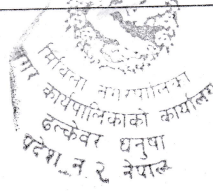 मिथिला नगरपालिका
नगर कार्यपालिकाको कार्यालय
ढल्केवर धनुषा
प्रदेश न. २ नेपाल